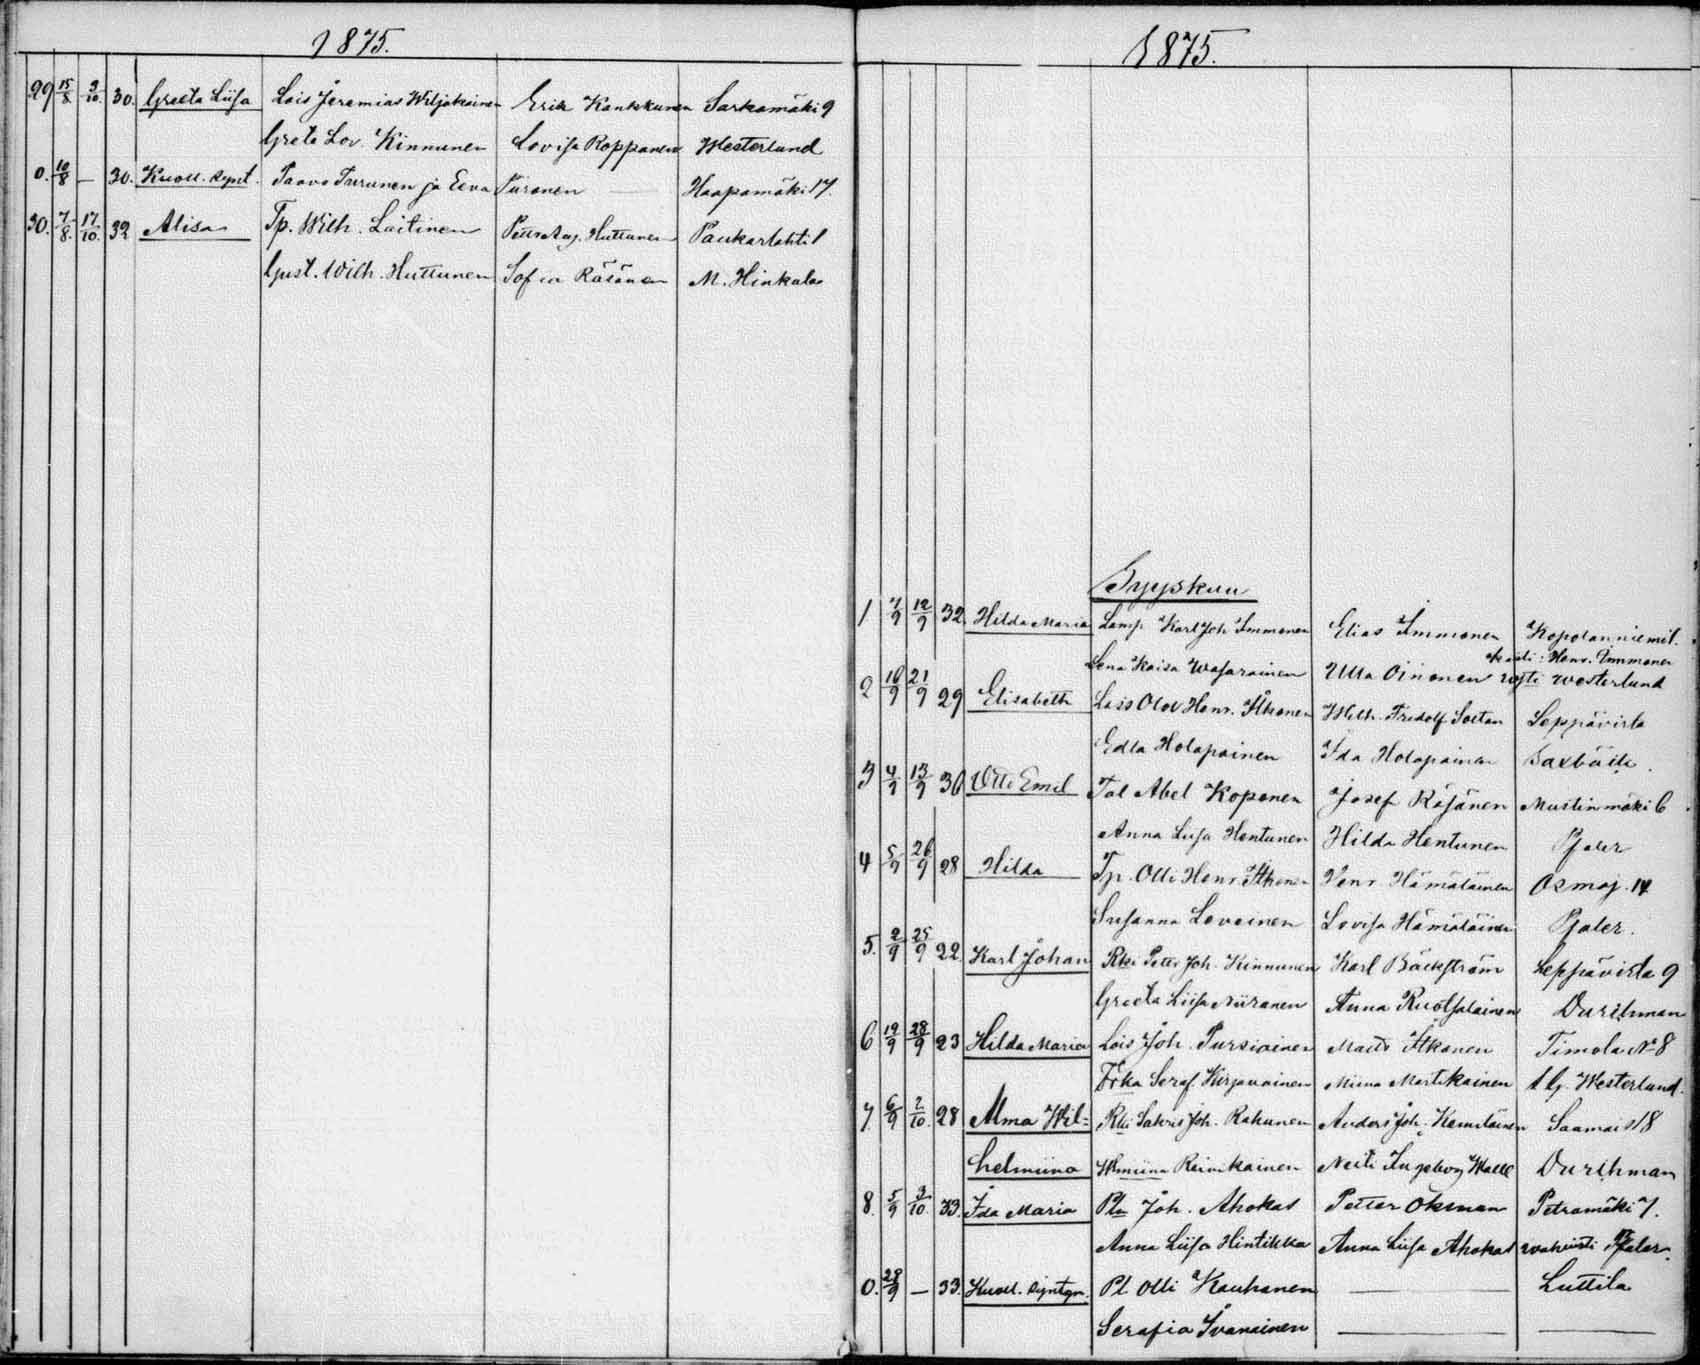 1875.
29 15/8 3/10 30. Greeta Liisa Lois Jeremias Wiljakainen Erik Kankkunen Sarkamäki 9
Greta Lov. Kinnunen Lovisa Roppanen Westerlund
0. 10/8 — 30. Kuoll. synt. Paavo Turunen ja Eeva Puranen — Haapamäki 17.
30. 7/8. 17/10. 32 Alisa Tp. Wilh. Laitinen Petter Aug. Huttunen Paukarlahti 1
Gust. Wilh. Huttunen Sofia Räsänen M. Hinkala
1875.
Syyskuu
1 7/9 12/9 32 Hilda Maria Lamp. Karl Joh Immonen Elias Immonen Kopolanniemi 1.
Lena Kaisa Wasarainen Ulla Oinonen Westerlund
Henr. Immonen
2 10/9 21/9 29 Elisabeth Lois Olov Henr. Itkonen Wilh. Fridolf Soltan Leppävirta
Edla Holopainen Ida Holopainen Saxbäck.
3 4/9 13/9 36 Otto Emil Tal Abel Koponen Josef Räsänen Mustinmäki 6
Anna Lusa Hentunen Hilda Hentunen Pfaler
4 5/9 26/9 28 Hilda Tp. Olli Henr. Itkonen Henr Hämäläinen Osmaj. 14
Susanna Lovainen Lovisa Hämäläinen Pfaler.
5. 2/9 25/9 22. Karl Johan Rki Petter Joh. Kinnunen Karl Bäckström Leppävirta 9
Greeta Liisa Niiranen Anna Ruotsalainen Durchman
6 19/9 28/9 23 Hilda Maria Lois Joh. Pursiainen Matts Itkonen Timola No 8
Erka Seraf. Kirjavainen Miina Martikainen Westerland.
7. 6/9 2/10. 28 Alma Wil- Rki Sakris Joh. Rahunen Anders Joh. Hämäläinen Saamais 18
helmiina Whmiina Reinikainen Neiti Ingeborg Wall Durchman
8. 5/9 3/10. 33. Ida Maria Pln Joh. Ahokas Petter Okman Petramäki 7.
Anna Liisa Hintikka Anna Liisa Ahokas Pfaler.
0. 28/9 — 33. Kuoll. syntyn. Pl Olli Kauhanen — Luttila
Serafia Ivanainen — —